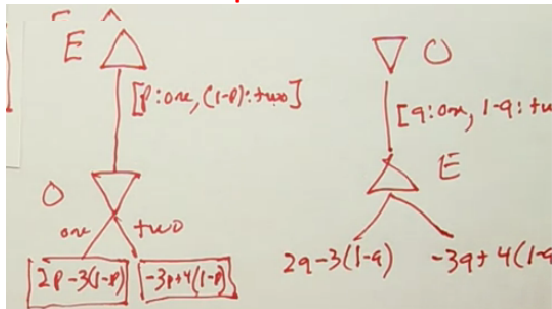 E
[p:one, (1-p): two]
O
one two
2p-3(1-p) -3p+4(1-p)
O
[q:one, 1-q: tw
E
2q-3(1-q) -3q+4(1-q